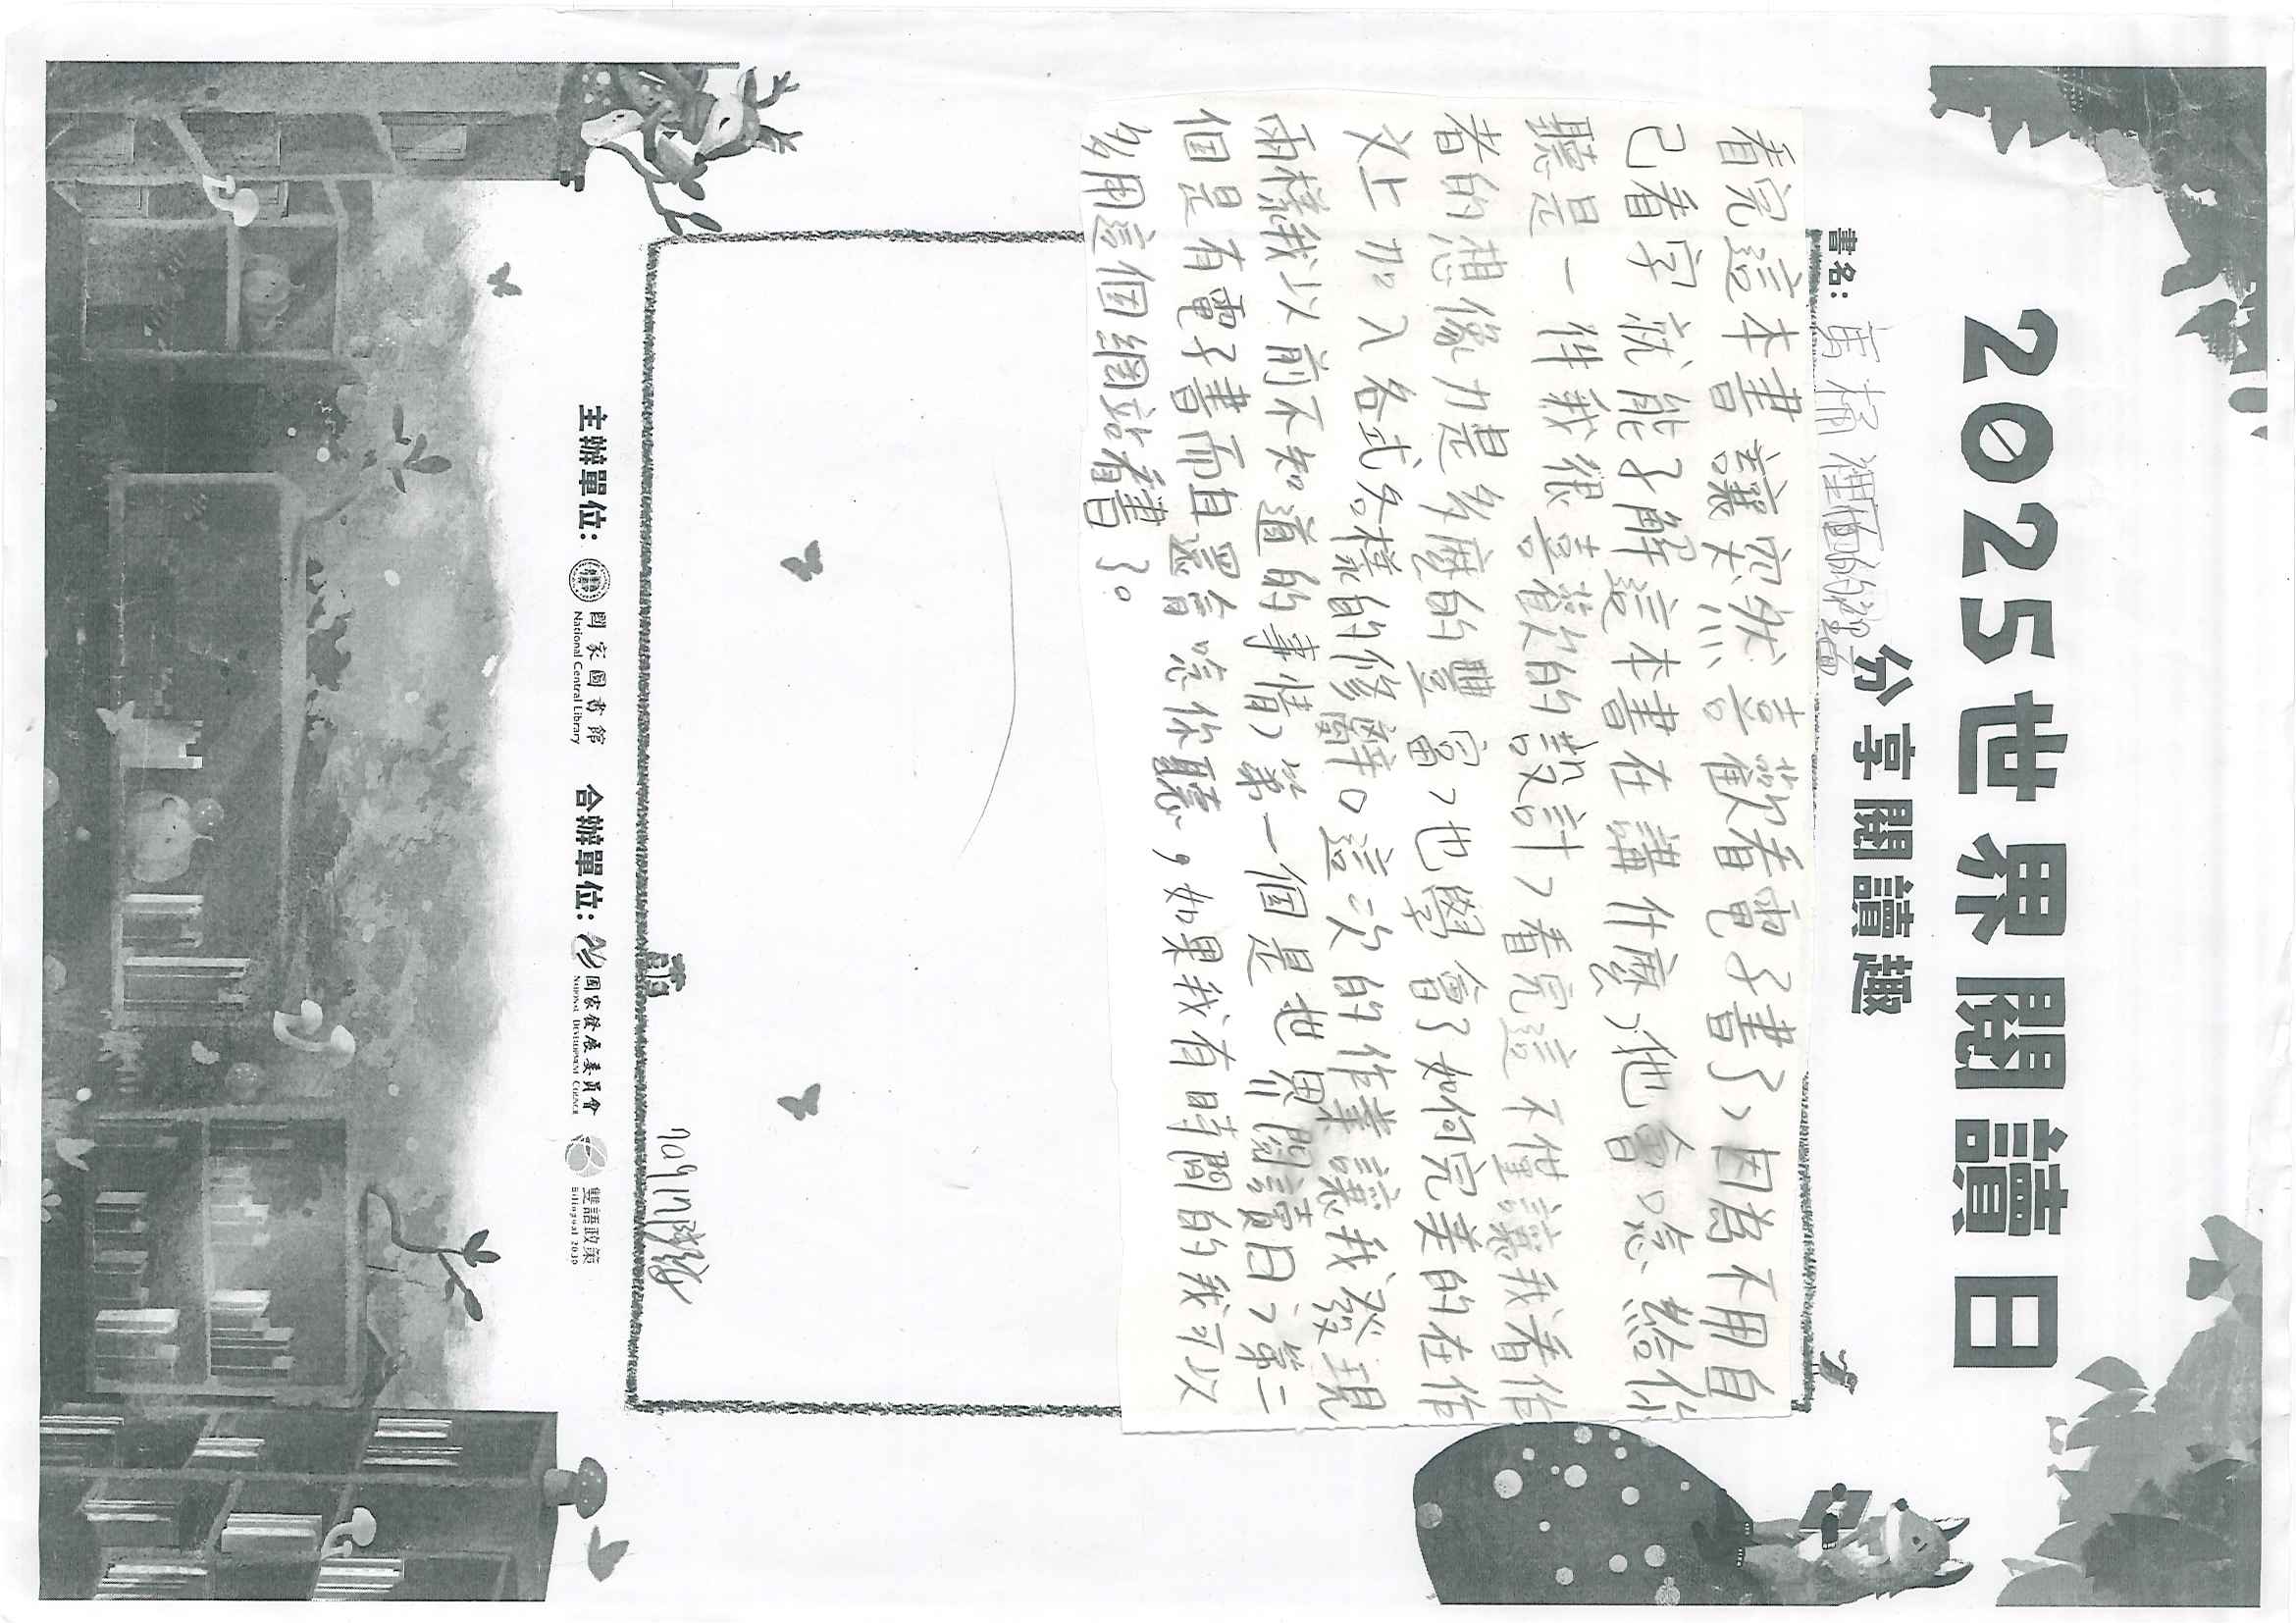 2025世界閱讀日
分享閱讀趣
書名：
看完這本書讓突然喜歡看電子書了，因為不用自
己看字就能了解這本書在講什麼，他會唸給你
聽是一件我很喜歡的設計，看完這不僅讓我看作
者的想像力是多麼的豐富，也學會了如何完美的在作
文上加入各式各樣的修辭。這次的作業讓我發現
兩樣我以前不知道的事情，第一個是世界閱讀日，第二
個是有電子書而且還會唸你聽，如果我有時間的我可以
多用這個網站看書了。
70917
主辦單位：國家圖書館 National Central Library 合辦單位：國家發展委員會 National Development Council 雙語政策 Bilingual 2030